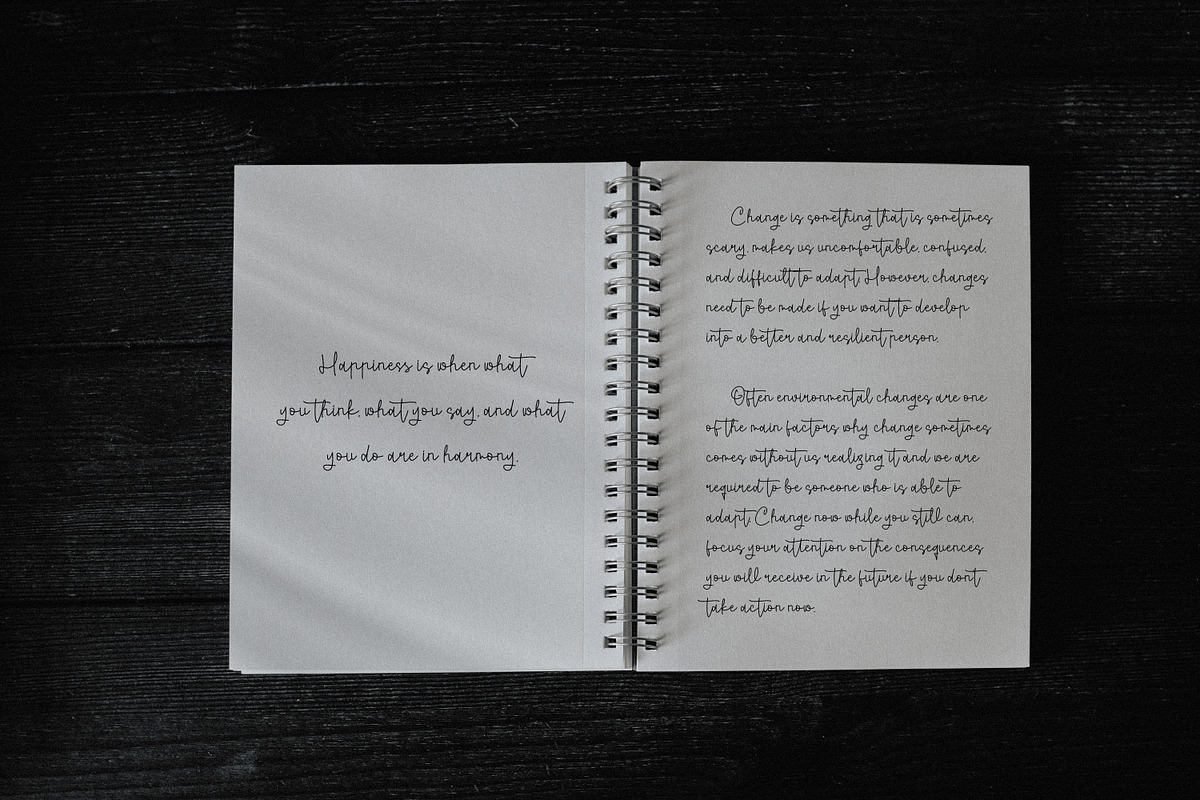 Happiness is when what
you think, what you say, and what
you do are in harmony.
Change is something that is sometimes
scary, makes us uncomfortable, confused,
and difficult to adapt. However, changes
need to be made if you want to develop
into a better and resilient person.
Often environmental changes are one
of the main factors why change sometimes
comes without us realizing it and we are
required to be someone who is able to
adapt. Change now while you still can,
focus your attention on the consequences
you will receive in the future if you dont
take action now.